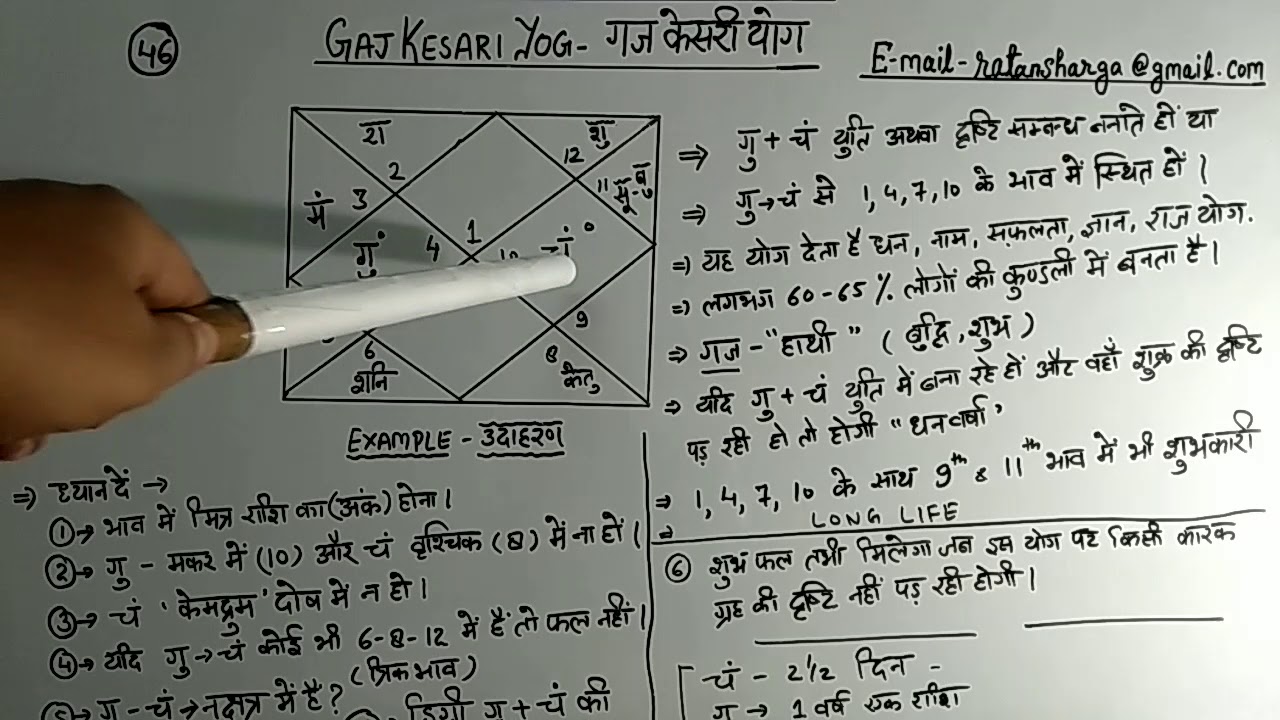 46
GAJ KESARI YOG - गज केसरी योग
E-mail - ratansharga@gmail.com
रा
2
शु
12
मं 3
11 सू-बु
गु° 4
1
10
चं°
6
शनि
9
8
केतु
EXAMPLE - उदाहरण
⇒ गु + चं युति अथवा दृष्टि सम्बन्ध बनाते हों या
⇒ गु → चं से 1, 4, 7, 10 के भाव में स्थित हों।
⇒ यह योग देता है धन, नाम, सफ़लता, ज्ञान, राज योग.
⇒ लगभग 60-65% लोगों की कुण्डली में बनता है।
⇒ गज - "हाथी" (बुद्धि, शुभ)
⇒ यदि गु + चं युति में बना रहे हों और वहाँ शुक्र की दृष्टि
पड़ रही हो तो होगी "धनवर्षा"
⇒ 1, 4, 7, 10 के साथ 9th & 11th भाव में भी शुभकारी
⇒ LONG LIFE
⇒ ध्यान दें →
① → भाव में मित्र राशि का (अंक) होना।
② → गु - मकर में (10) और चं वृश्चिक (8) में ना हों।
③ → चं 'केमद्रुम' दोष में न हो।
④ → यदि गु → चं कोई भी 6-8-12 में हैं तो फल नहीं।
(त्रिक भाव)
⑤ → गु - चं → नक्षत्र में हैं?
डिग्री गु + चं की
⑥ शुभ फल तभी मिलेगा जब इस योग पर किसी कारक
ग्रह की दृष्टि नहीं पड़ रही होगी।
चं - 2 1/2 दिन -
गु → 1 वर्ष एक राशि